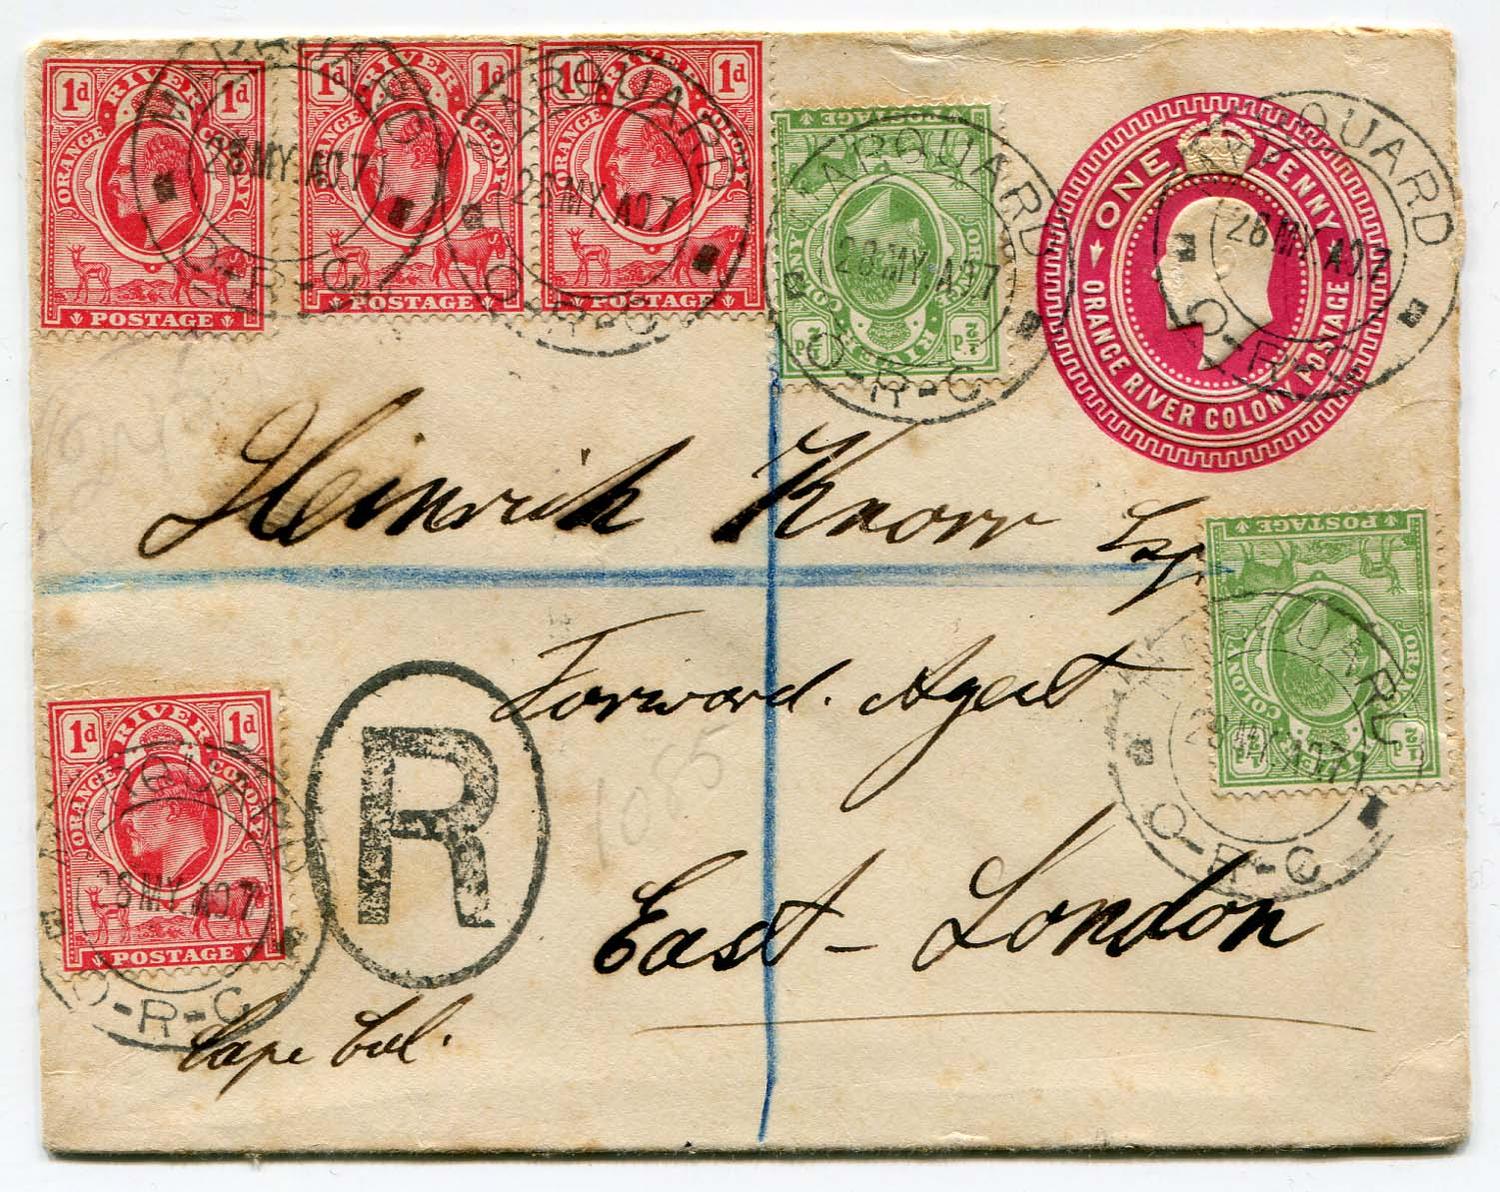 1d ORANGE RIVER COLONY 1d
POSTAGE
1d ORANGE RIVER COLONY 1d
POSTAGE
1d ORANGE RIVER COLONY 1d
POSTAGE
MARQUARD
28 MY. A07
O-R-C
MARQUARD
28 MY. A07
O-R-C
POSTAGE
ORANGE RIVER COLONY
½d ½d
MARQUARD
28 MY. A07
O-R-C
ONE PENNY
ORANGE RIVER COLONY POSTAGE
MARQUARD
28 MY. A07
O-R-C
Heinrich Knorr Esq
POSTAGE
ORANGE RIVER COLONY
½d ½d
MARQUARD
28 MY. A07
O-R-C
Forward. Agent
1d ORANGE RIVER COLONY 1d
POSTAGE
MARQUARD
28 MY. A07
O-R-C
R
1085
East-London
Cape Col.